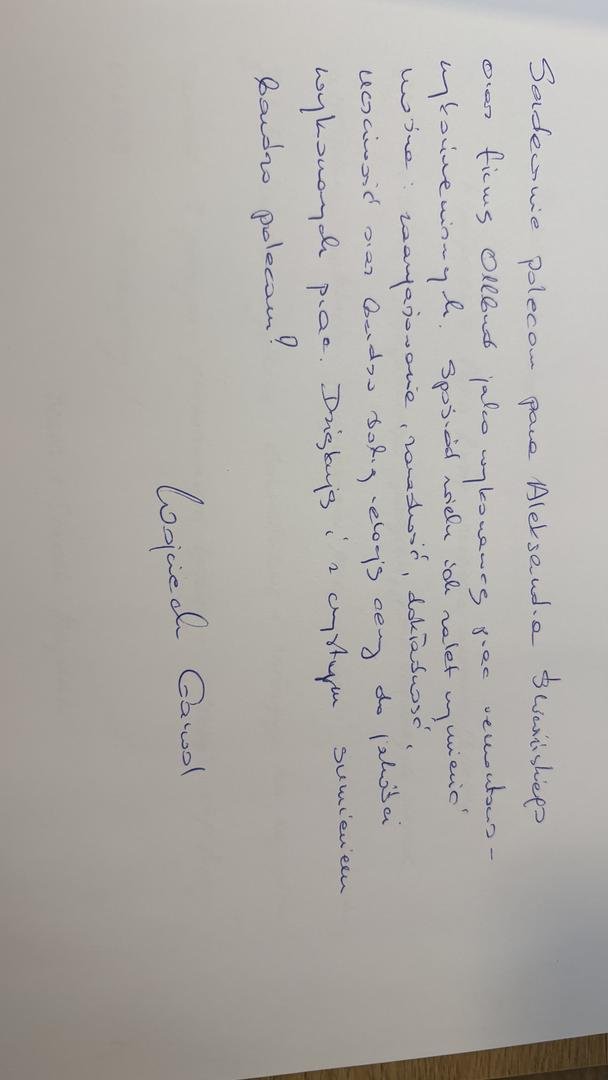 Serdecznie polecam pana Aleksandra
oraz firmę jako wykonawcę prac remontowo-
wykończeniowych. Spośród wielu ich zalet wymienić
można: zaangażowanie, zaradność, dokładność,
uczciwość oraz bardzo dobrą relację ceny do jakości
wykonanych prac. Dziękuję i z czystym sumieniem
bardzo polecam!
Wojciech Gaweł